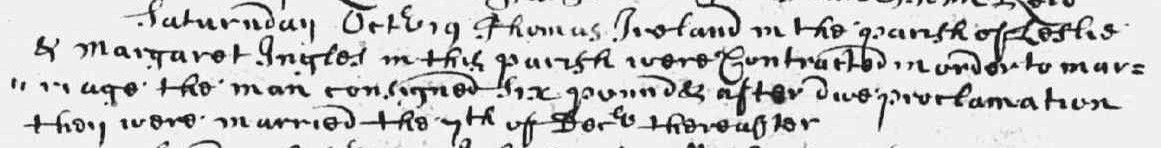 Saturnday Octr 19 Thomas Ireland in the parish of Leslie
& Margaret Ingles in this parish were Contracted in order to mar=
" riage the man consigned six pounds after due proclamation
they were married the 7th of Decr thereafter